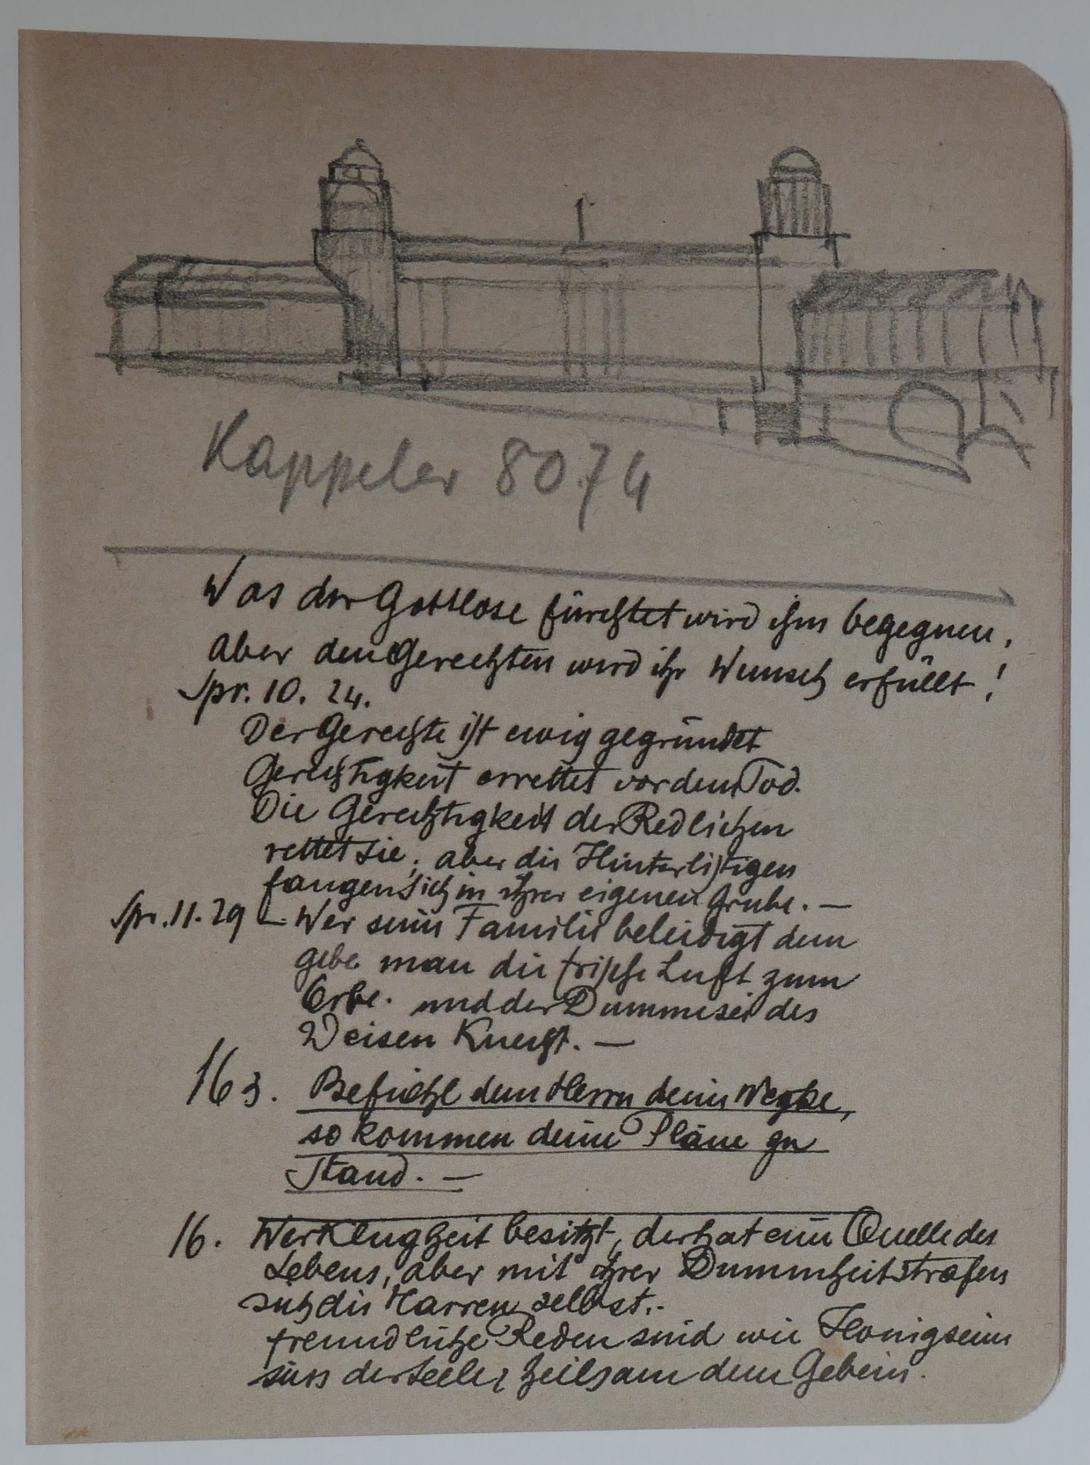 Kappeler 8074
Was der Gottlose fürchtet wird ihm begegnen,
aber den Gerechten wird ihr Wunsch erfüllt!
Spr. 10. 24.
Der Gerechte ist ewig gegründet
Gerechtigkeit errettet vor dem Tod.
Die Gerechtigkeit der Redlichen
rettet sie, aber die Hinterlistigen
fangen sich in ihrer eigenen Grube. —
Spr. 11. 29 — Wer seine Familie beleidigt dem
gebe man die frische Luft zum
Erbe. und der Dumme sei des
Weisen Knecht. —
16 3. Befiehl dem Herrn deine Werke,
so kommen deine Pläne zu
Stand. —
16. Wer Klugheit besitzt, der hat eine Quelle des
Lebens, aber mit ihrer Dummheit strafen
sich die Narren selbst.-
freundliche Reden sind wie Honigseim
süss der Seele, heilsam dem Gebein.